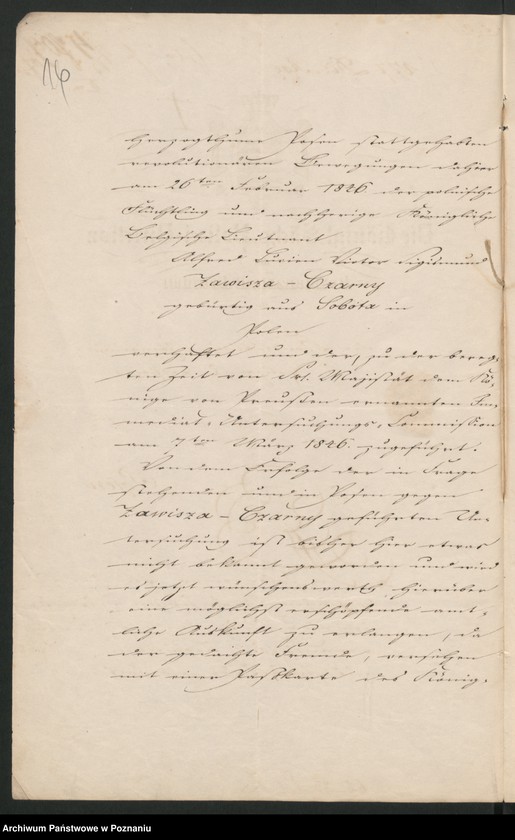 16
Herzogthume Posen stattgehabten
revolutionären Bewegungen dahier
am 26ten Februar 1826 der polnische
Flüchtling und nachherige Königliche
Belgische Lieutnant
Alfred Lucien Victor Sigismund
Zawisza - Czarny
gebürtig aus Sobóta in
Polen
verhaftet und der, zu der bereg-
ten Zeit von Sr. Majistät dem Kö-
nige von Preußen ernannten Im-
mediat-Untersuchungs-Commission
am 7ten März 1846. zugeführt.
Von dem Erfolge der in Frage
stehenden und in Posen gegen
Zawisza - Czarny geführten Un-
tersuchung ist bisher hier etwas
nicht bekannt geworden und wird
es jetzt wünschenswerth, hierüber
eine möglichst erschöpfende amt-
liche Auskunft zu erlangen, da
der gedachte Fremde, versehen
mit einer Paßkarte des König-
Archiwum Państwowe w Poznaniu